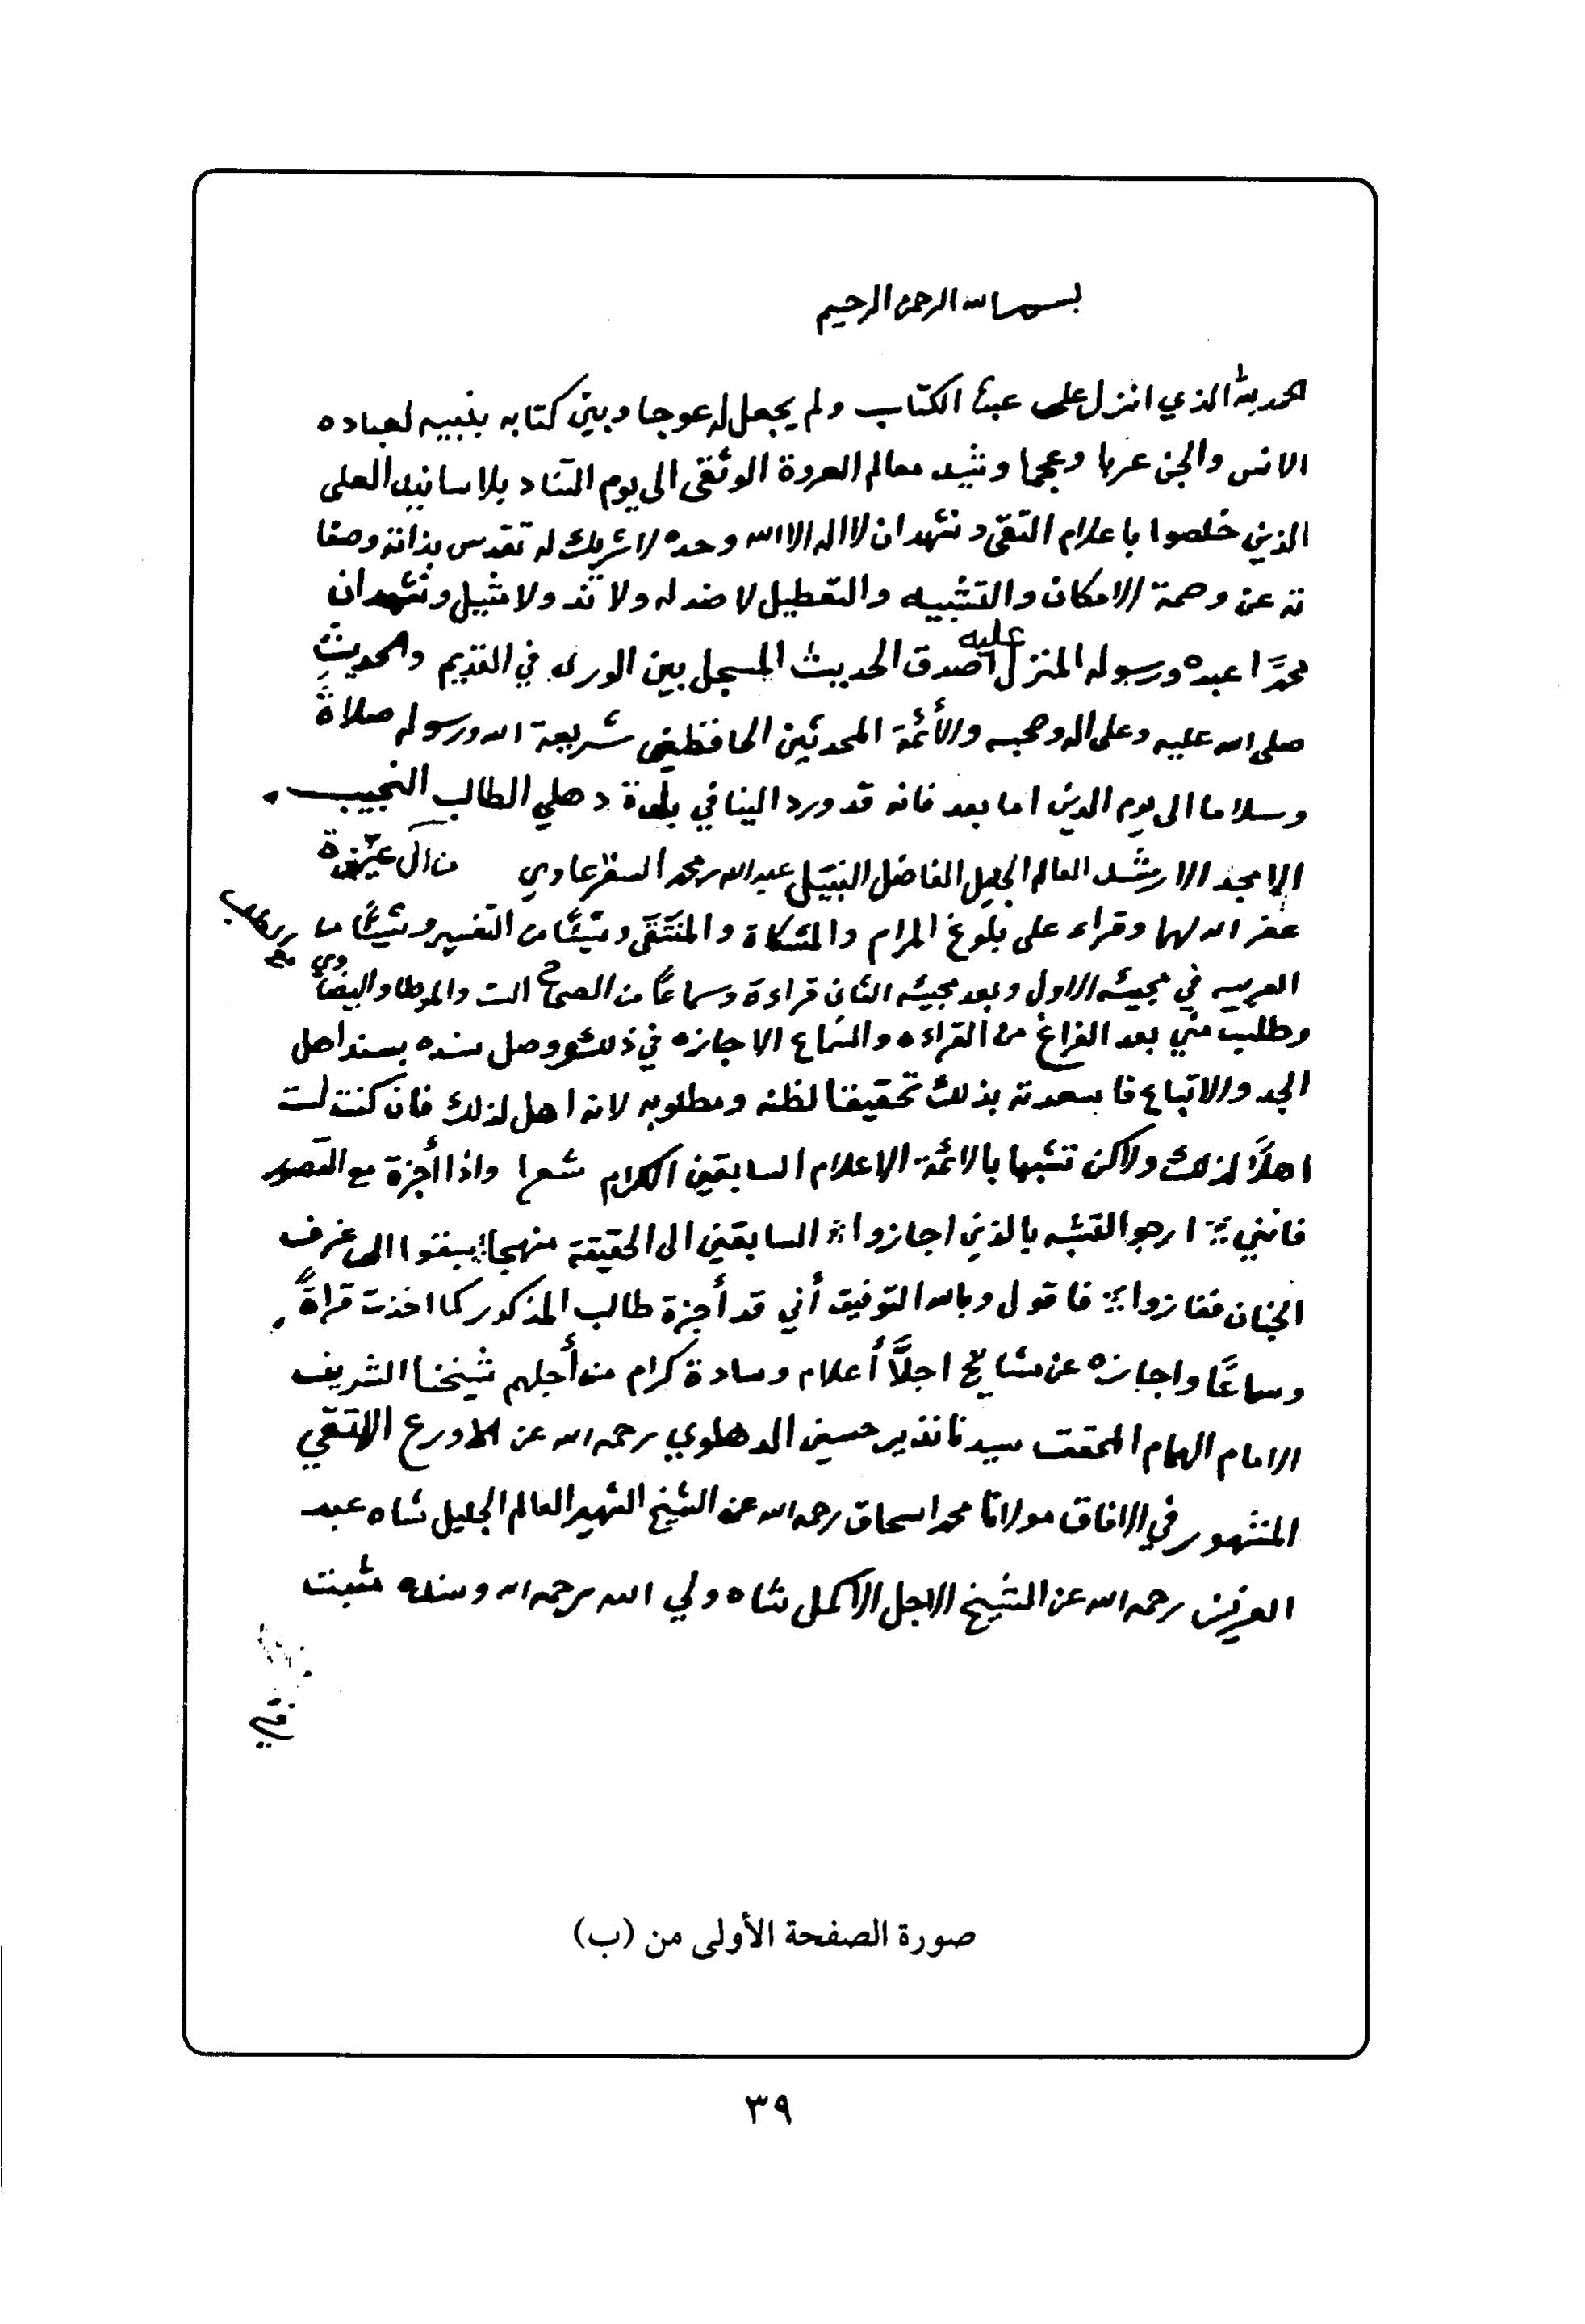 بسم الله الرحمن الرحيم
الحمد لله الذي انزل على عبده الكتاب ولم يجعل له عوجا وبين كتابه بنبيه لعباده
الانس والجن عربا وعجما وشيد معالم العروة الوثقى الى يوم التناد بلاسانيد العلى
الذين خلصوا باعلام التقى ونشهد ان لا اله الا الله وحده لا شريك له تقدس بذاته وصفا
ته عن وصمة الامكان والتشبيه والتعطيل لا ضد له ولا ند ولا مثيل ونشهد ان
محمدًا عبده ورسوله المنزل عليه اصدق الحديث المسجل بين الورى في القديم والحديثِ
صلى الله عليه وعلى اله وصحبه والأئمة المحدثين الحافظين شريعة الله ورسوله صلاةً
وسلاما الى يوم الدين اما بعد فانه قد ورد الينا في بلدة دهلي الطالب النجيب
الامجد الارشد العالم الجليل الفاضل النبيل عبدالله بن محمد القرعاوي من آل عنيزة
غفر الله لهما وقراء على بلوغ المرام والمشكاة والمنتقى وشيئًا من التفسير وشيئًا من
العربيه في مجيئه الاول وبعد مجيئه الثاني قراءة وسماعًا من الصحاح الست والموطا والبيضاوي
وطلب مني بعد الفراغ من القراءه والسماع الاجازه في ذلك ووصل سنده بسند اهل
الجد والاتباع فاسعدته بذلك تحقيقا لظنه ومطلوبه لانه اهل لذلك فان كنت لست
اهلاً لذلك ولاكن تشبها بالائمة الاعلام السابقين الكرام شعرا واذا أجزة مع القصور
فانني ارجو التشبه بالذين اجازوا السابقين الى الحقيقة منهجا سبقوا الى غرف
الجنان ففازوا فاقول وبالله التوفيق أني قد أجزة طالب المذكور كما اخذت قراةً
وسماعًا واجازه عن مشايخ اجلاَّ أعلام وسادة كرام من أجلهم شيخنا الشريف
الامام الهمام المحقق سيدنا نذير حسين الدهلوي رحمه الله عن الاورع التقي
المشهور في الافاق مولانا محمد اسحاق رحمه الله عن الشيخ الشهير العالم الجليل شاه عبد
العزيز رحمه الله عن الشيخ الاجل الاكمل شاه ولي الله رحمه الله وسنده مثبت
صورة الصفحة الأولى من (ب)
٣٩